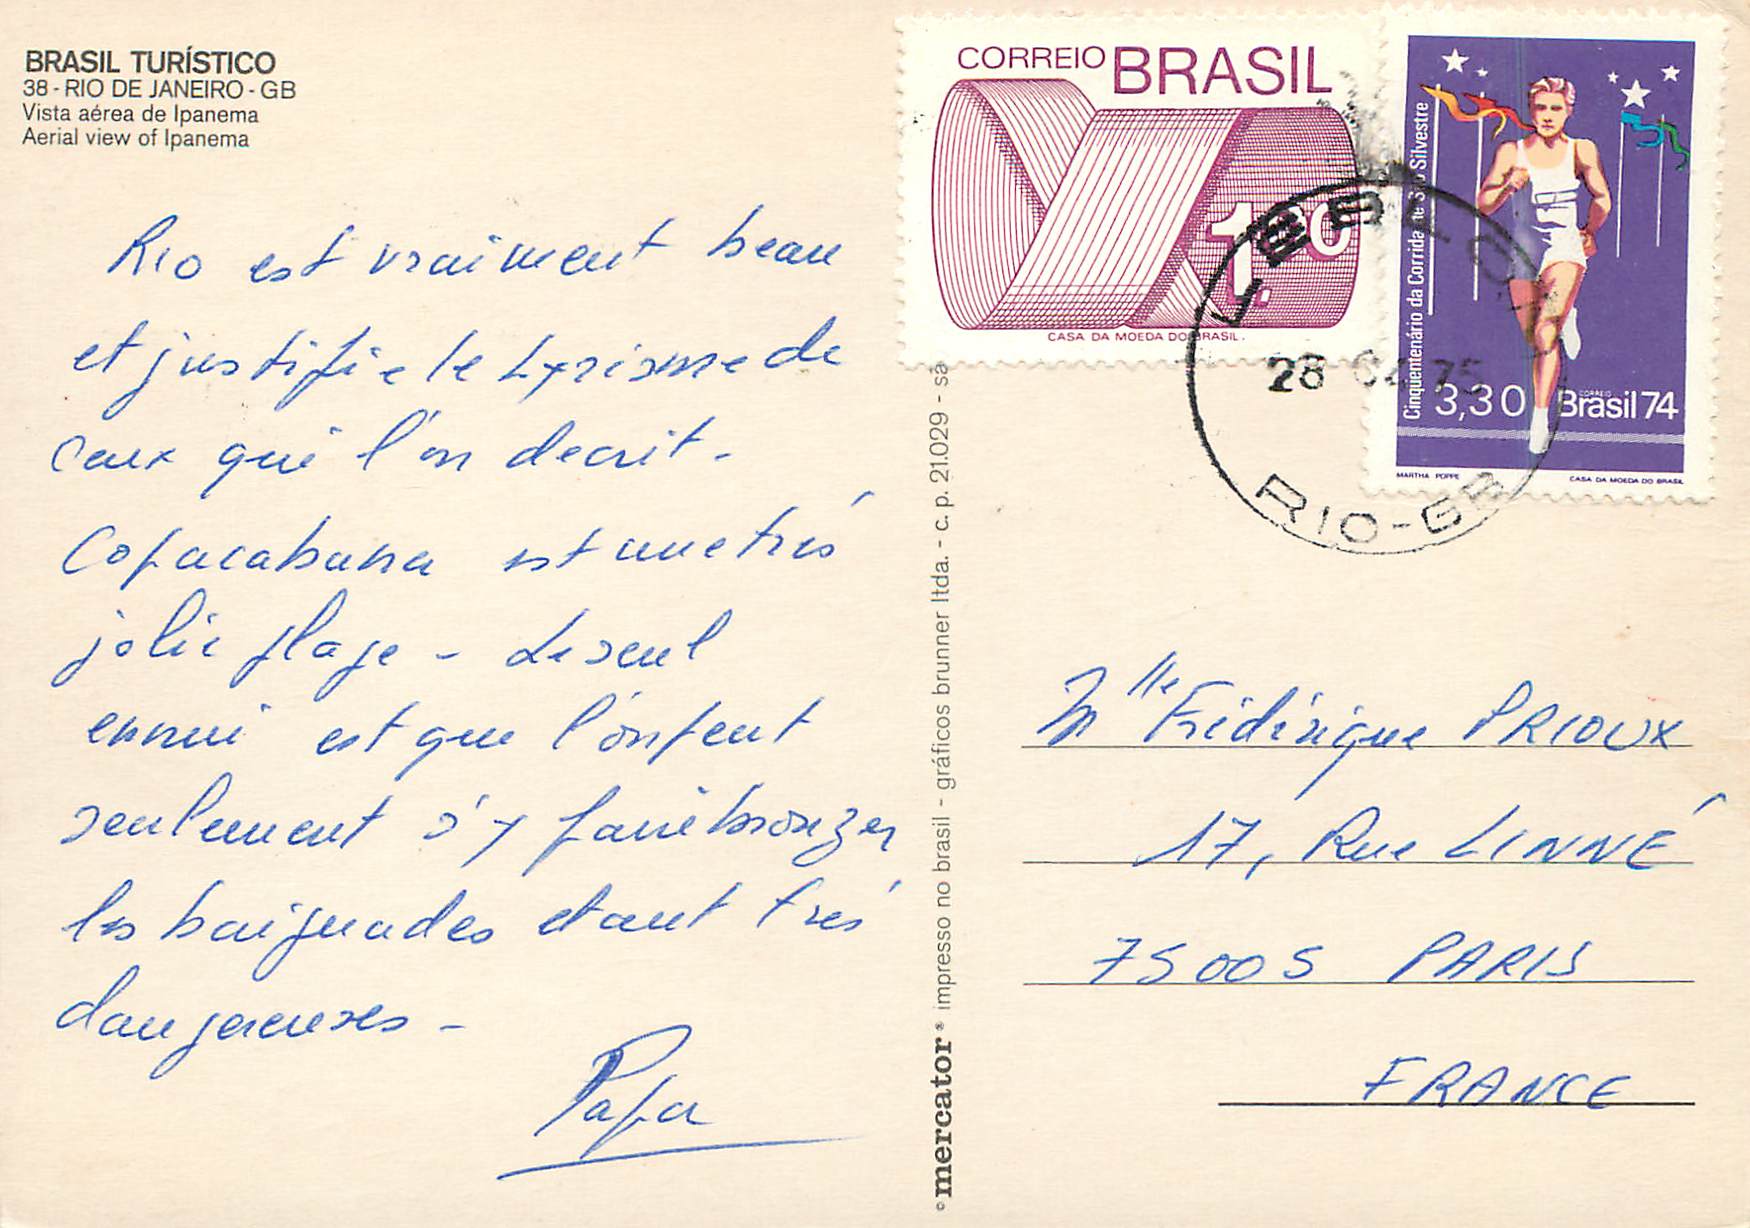 BRASIL TURÍSTICO
38 - RIO DE JANEIRO - GB
Vista aérea de Ipanema
Aerial view of Ipanema
Rio est vraiment beau
et justifie le lyrisme de
ceux qui l'on decrit -
Copacabana est une trés
jolie plage - Le seul
ennui est que l'on peut
seulement s'y faire bronzer
les baignades etant trés
dangereuses -
Papa
© mercator ® impresso no brasil - gráficos brunner ltda. - c. p. 21.029 - sã
CORREIO BRASIL
CASA DA MOEDA DO BRASIL.
Cinquentenário da Corrida de São Silvestre
3,30 CORREIO Brasil 74
MARTHA POPPE CASA DA MOEDA DO BRASIL
LEBLON
28 04 75
RIO-GB
Mlle Frédérique PRIOUX
17, Rue LINNÉ
75005 PARIS
FRANCE